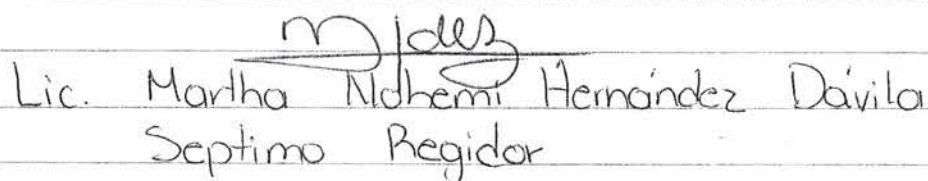 Lic. Martha Nohemi Hernández Dávila
Septimo Regidor